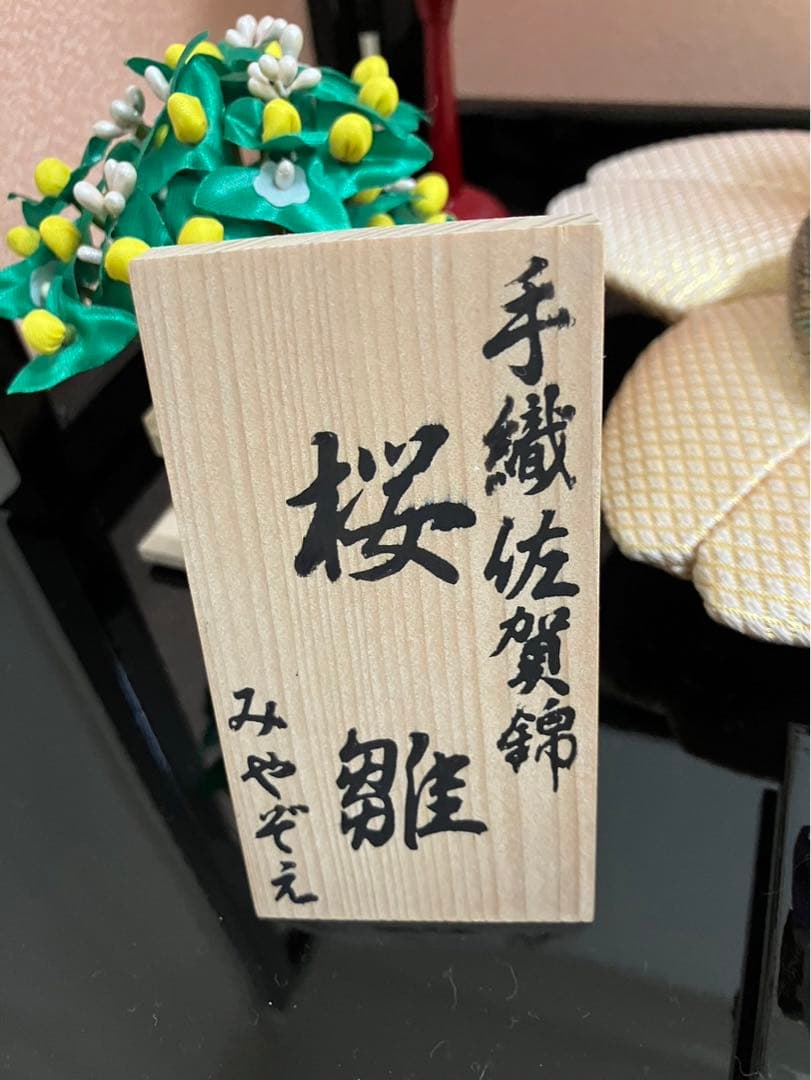 手織佐賀錦
桜雛
みやぞえ